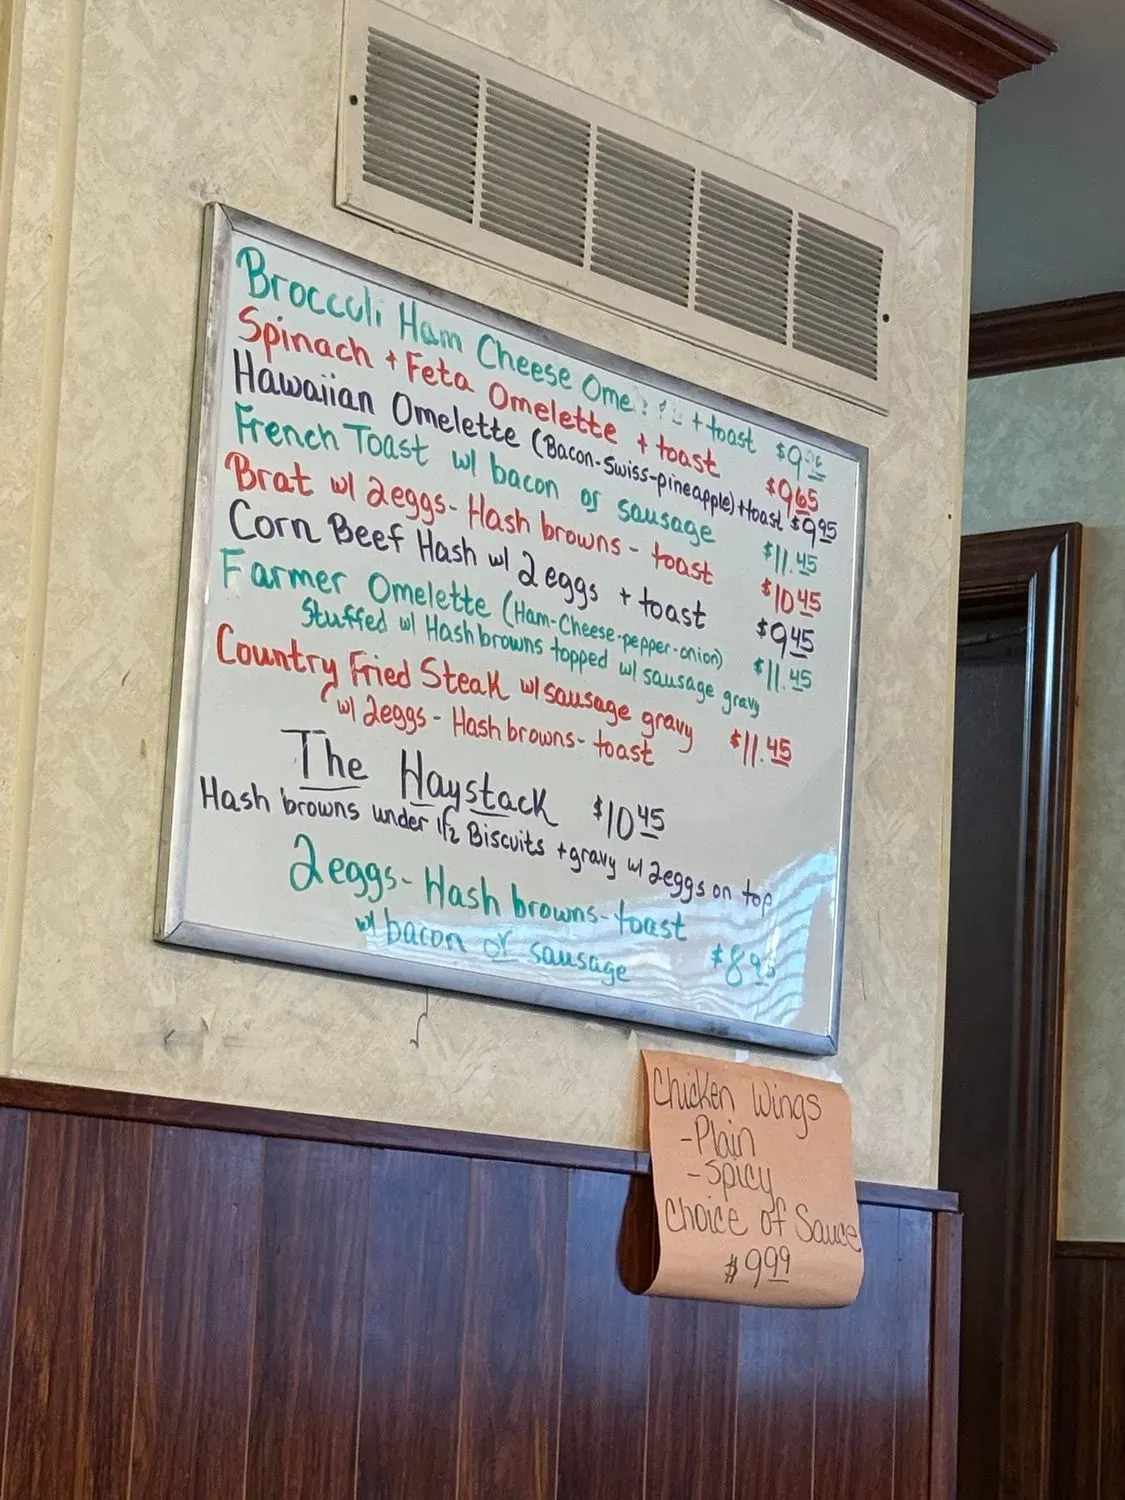 Broccoli Ham Cheese + toast
Spinach + Feta Omelette + toast $9.65
Hawaiian Omelette (Bacon-Swiss-pineapple) + toast $9.95
French Toast w/ bacon or sausage $11.45
Brat w/ 2eggs- Hash browns - toast $10.45
Corn Beef Hash w/ 2 eggs + toast $9.45
Farmer Omelette (Ham-Cheese-pepper-onion) $11.45
Stuffed w/ Hashbrowns topped w/ sausage gravy
Country Fried Steak w/ sausage gravy $11.45
w/ 2eggs - Hashbrowns- toast
The Haystack $10.45
Hash browns under 1/2 Biscuits + gravy w/ 2eggs on top
2eggs- Hash browns- toast
w/ bacon or sausage $8.95
Chicken Wings
-Plain
-Spicy
Choice of Sauce
$9.99